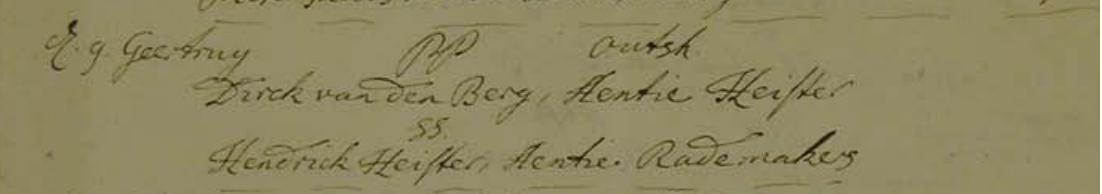 E. g. Geertruy PP outsh.
Dirck van den Berg, Aentie Heister
SS.
Hendrick Heister, Aentie. Rademakers